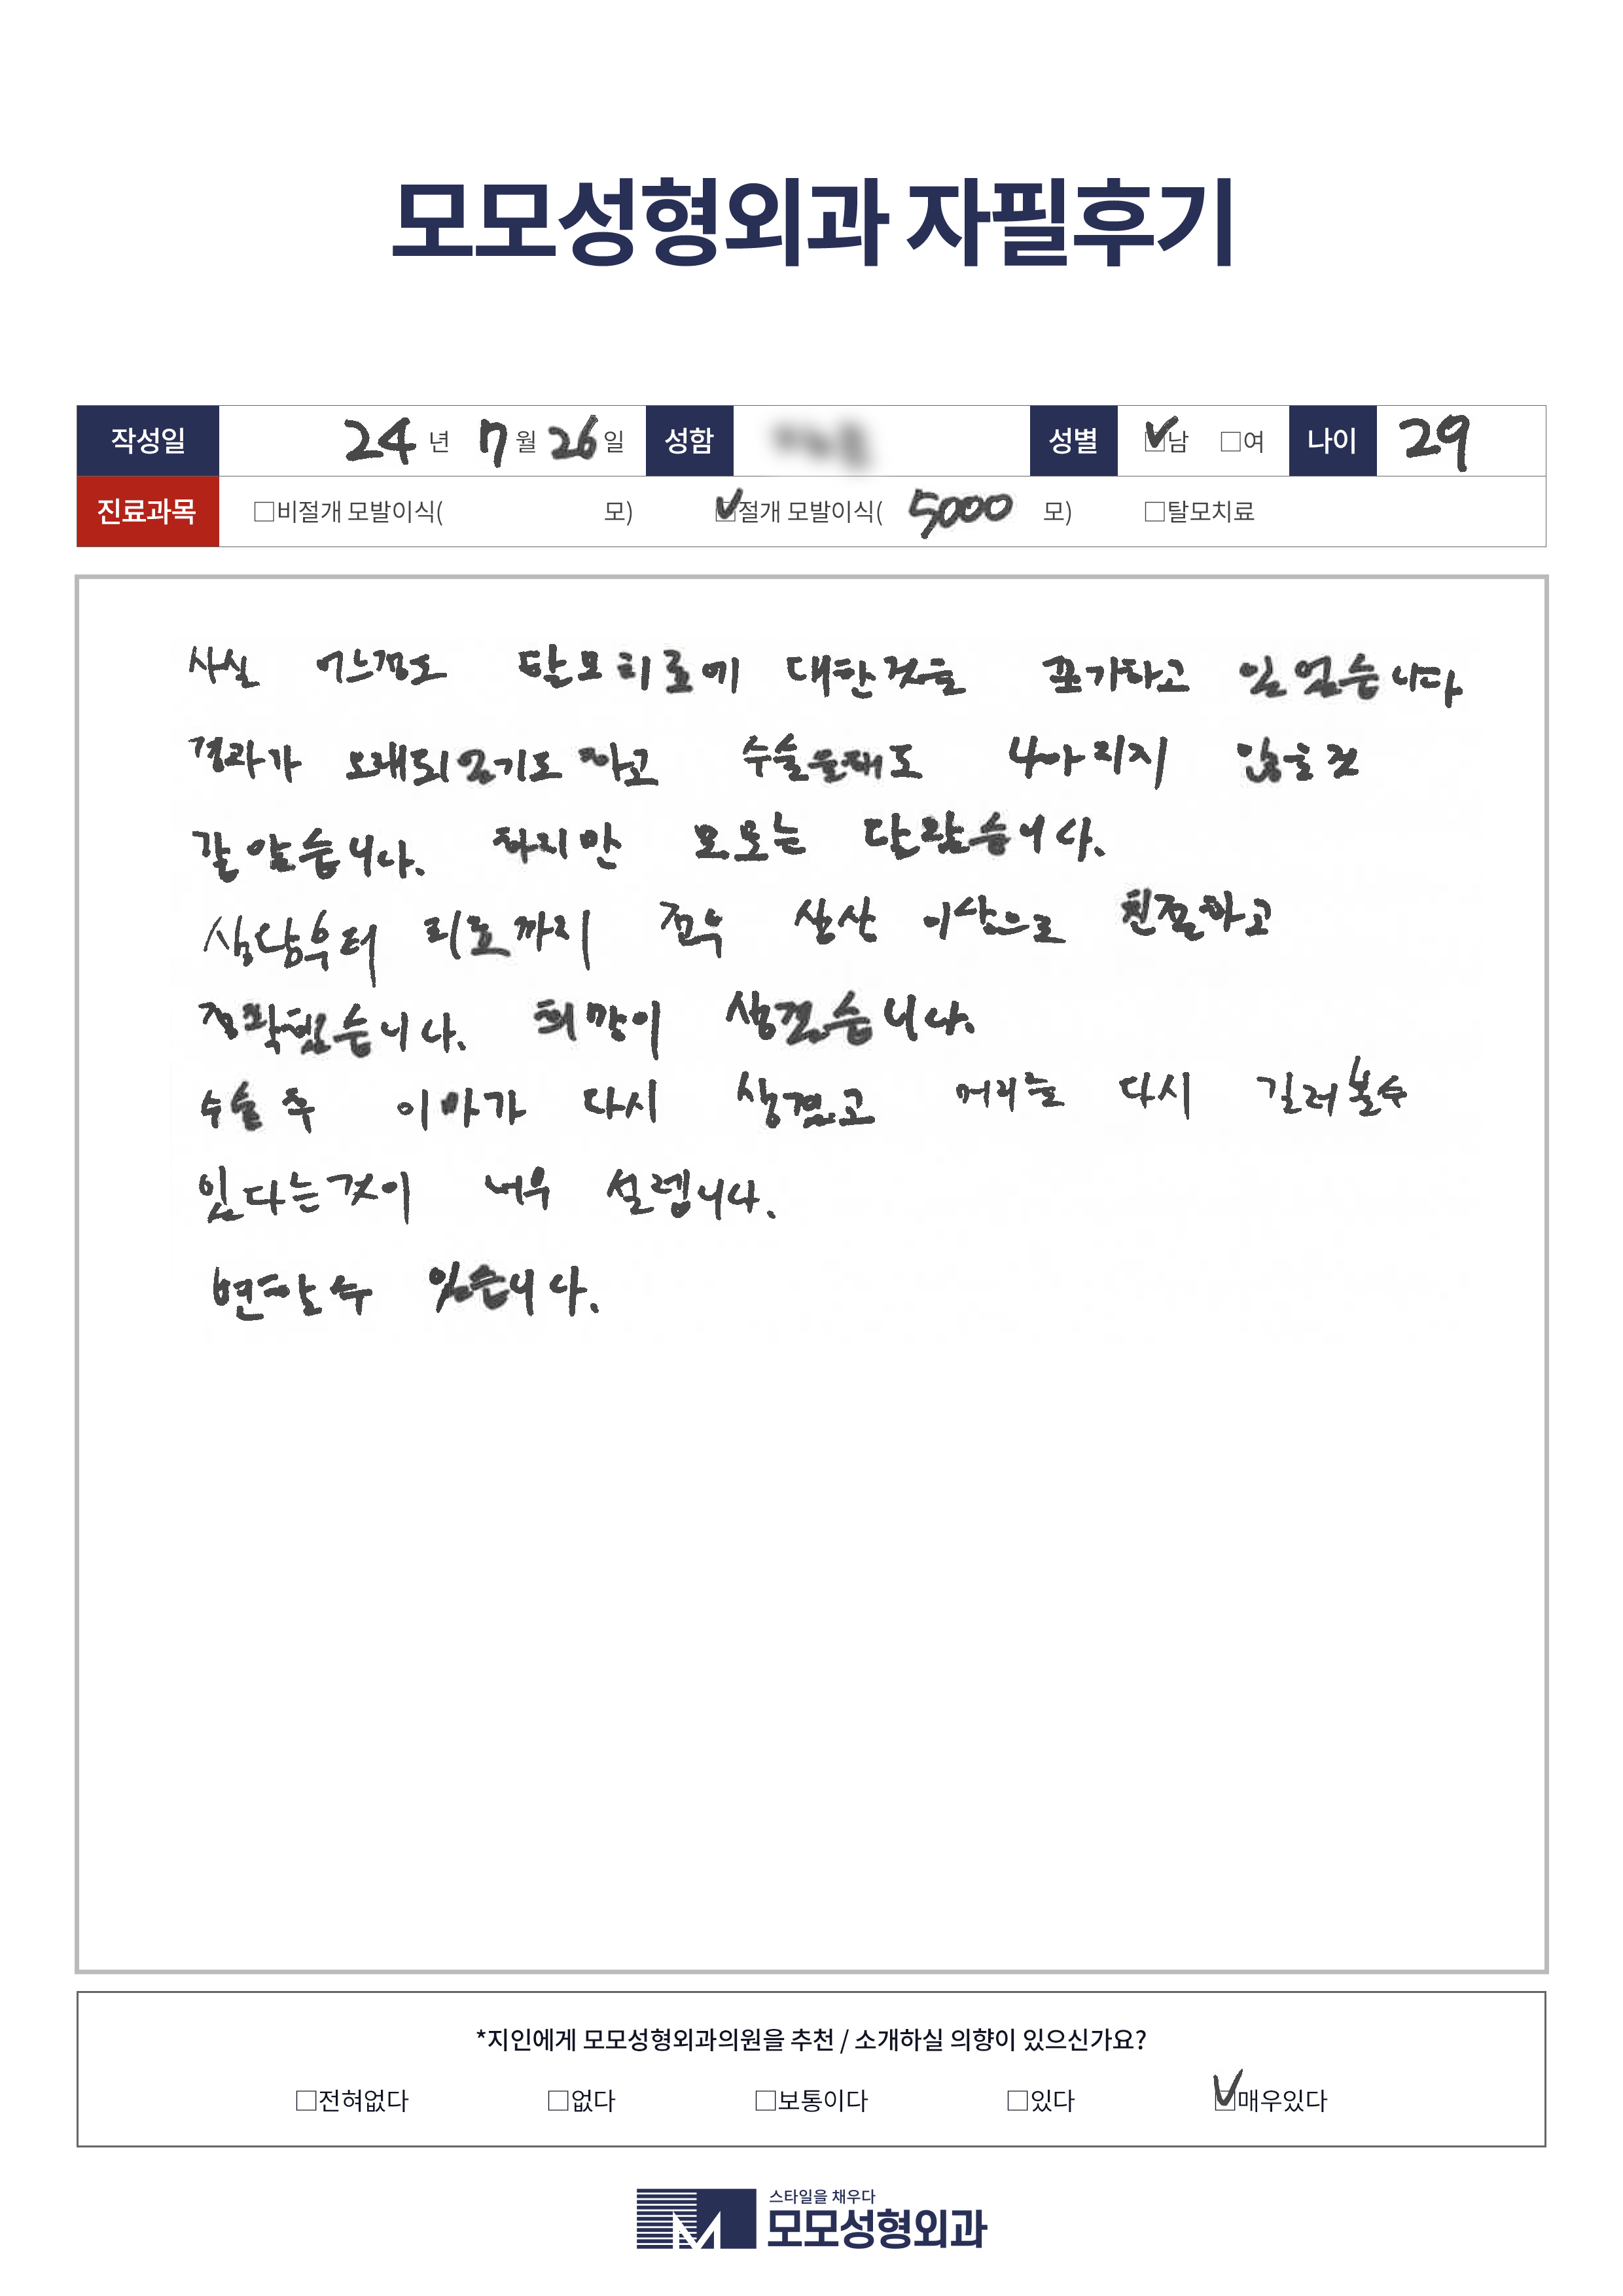 모모성형외과 자필후기
작성일 24 년 7 월 26 일 성함 성별 ☑남 □여 나이 29
진료과목 □비절개 모발이식( 모) ☑절개 모발이식( 5000 모) □탈모치료
사실 어느정도 탈모치료에 대한것을 포기하고 있었습니다
경과가 오래되었기도 하고 수술을해도 나아지지 않을것
같았습니다. 하지만 모모는 달랐습니다.
상담부터 치료까지 전부 상상 이상으로 친절하고
정확했습니다. 희망이 생겼습니다.
수술 후 이마가 다시 생겼고 머리를 다시 길러볼수
있다는것이 너무 설렙니다.
변할수 있습니다.
*지인에게 모모성형외과의원을 추천 / 소개하실 의향이 있으신가요?
□전혀없다 □없다 □보통이다 □있다 ☑매우있다
스타일을 채우다
모모성형외과